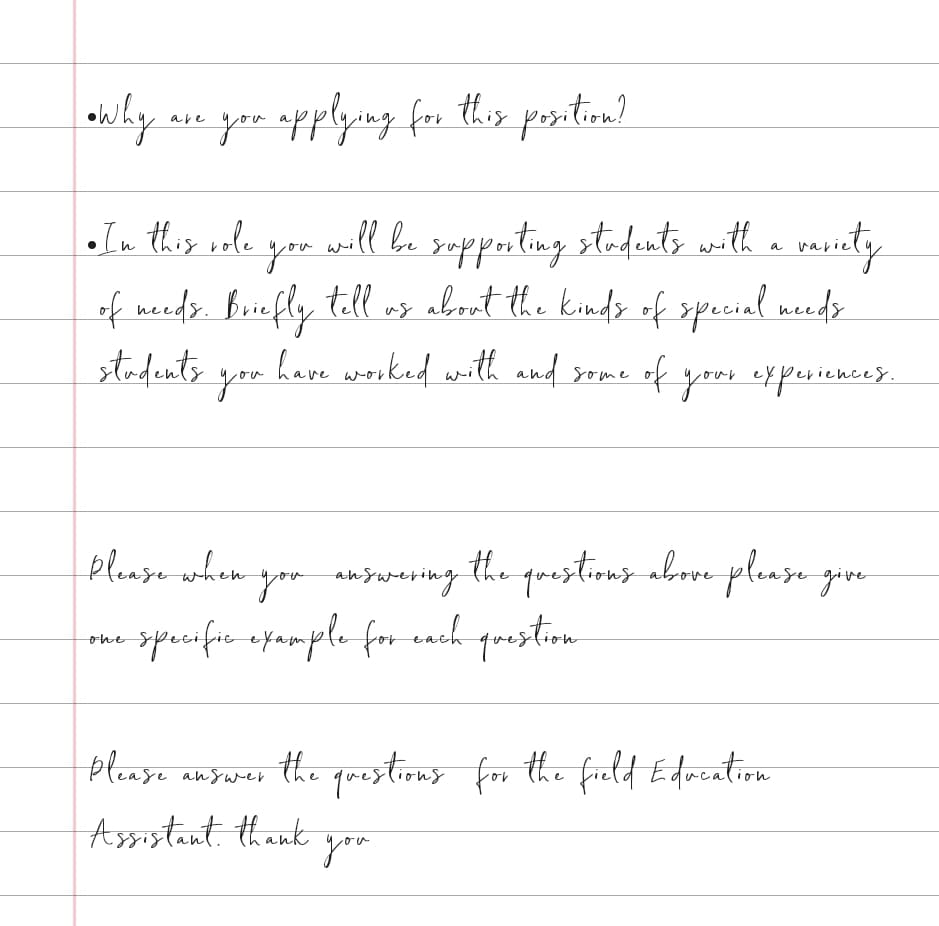 •Why are you applying for this position?
•In this role you will be supporting students with a variety
of needs. Briefly tell us about the kinds of special needs
students you have worked with and some of your experiences.
Please when you answering the questions above please give
one specific example for each question
Please answer the questions for the field Education
Assistant. thank you